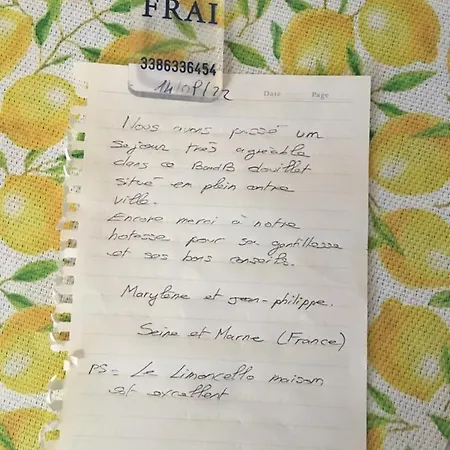 FRAI
3386336454
14/09/22
Date Page
Nous avons passé un
séjour très agréable
dans ce BandB douillet
situé en plein centre
ville.
Encore merci à notre
hotesse pour sa gentillesse
et ses bons conseils.
Marylène et jean-philippe.
Seine et Marne (France)
PS = Le Limoncello maison
est excellent